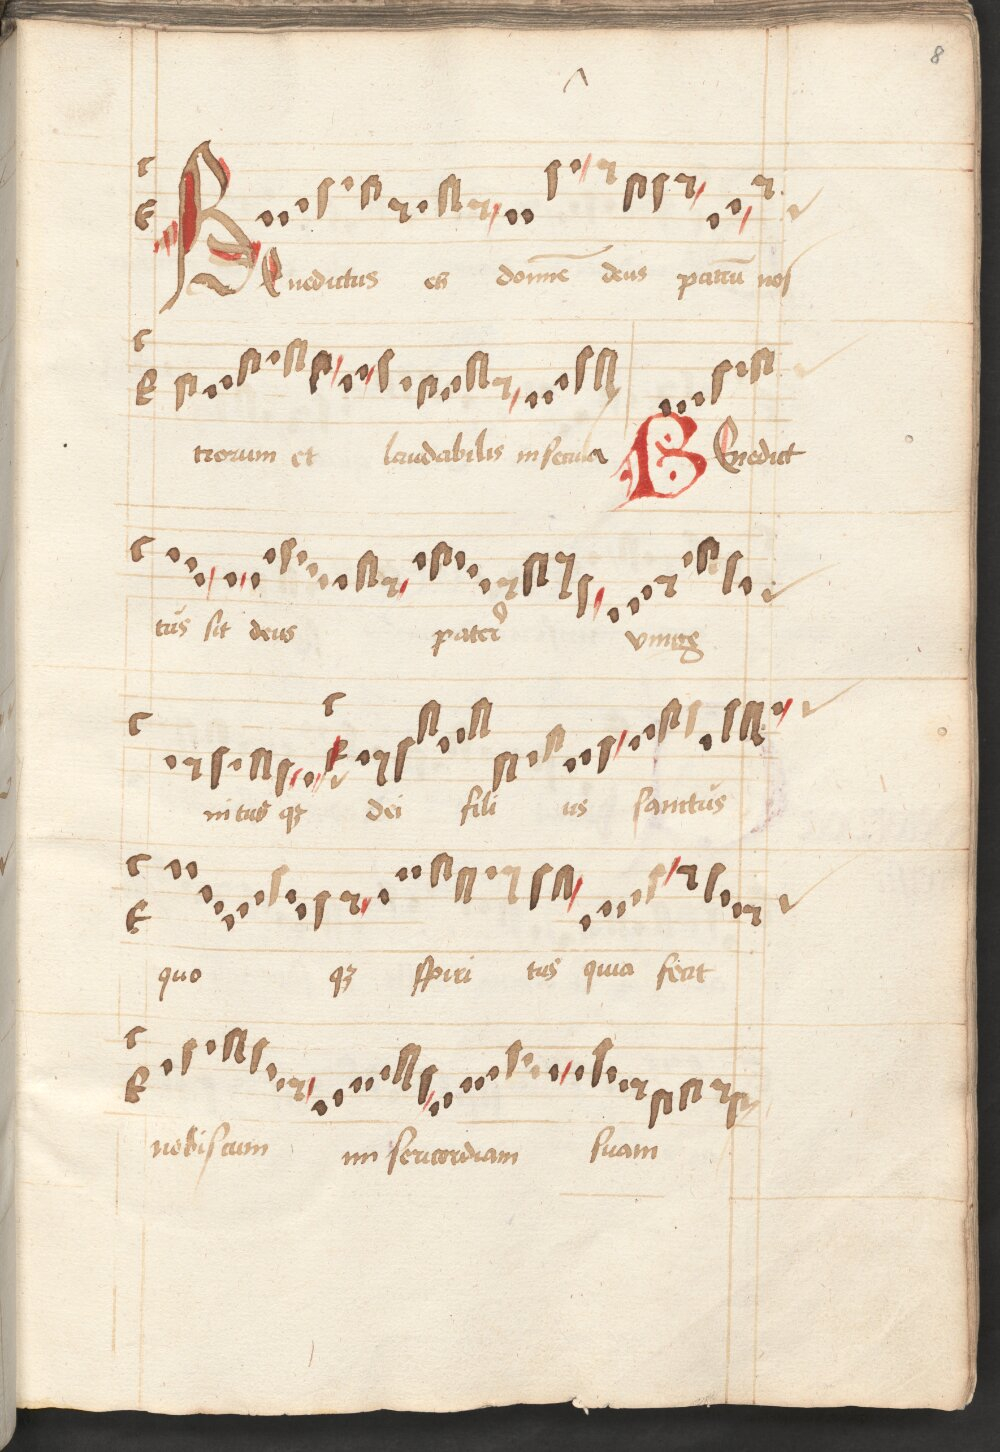 8
Benedictus es domīe deus patrū nos
trorum et laudabilis in secula Benedict
tūs sit deus pater vnig
nitus qꝫ dei fili us sanctūs
quo qꝫ spiri tus quia fecit
nobiscum mi sericordiam suam